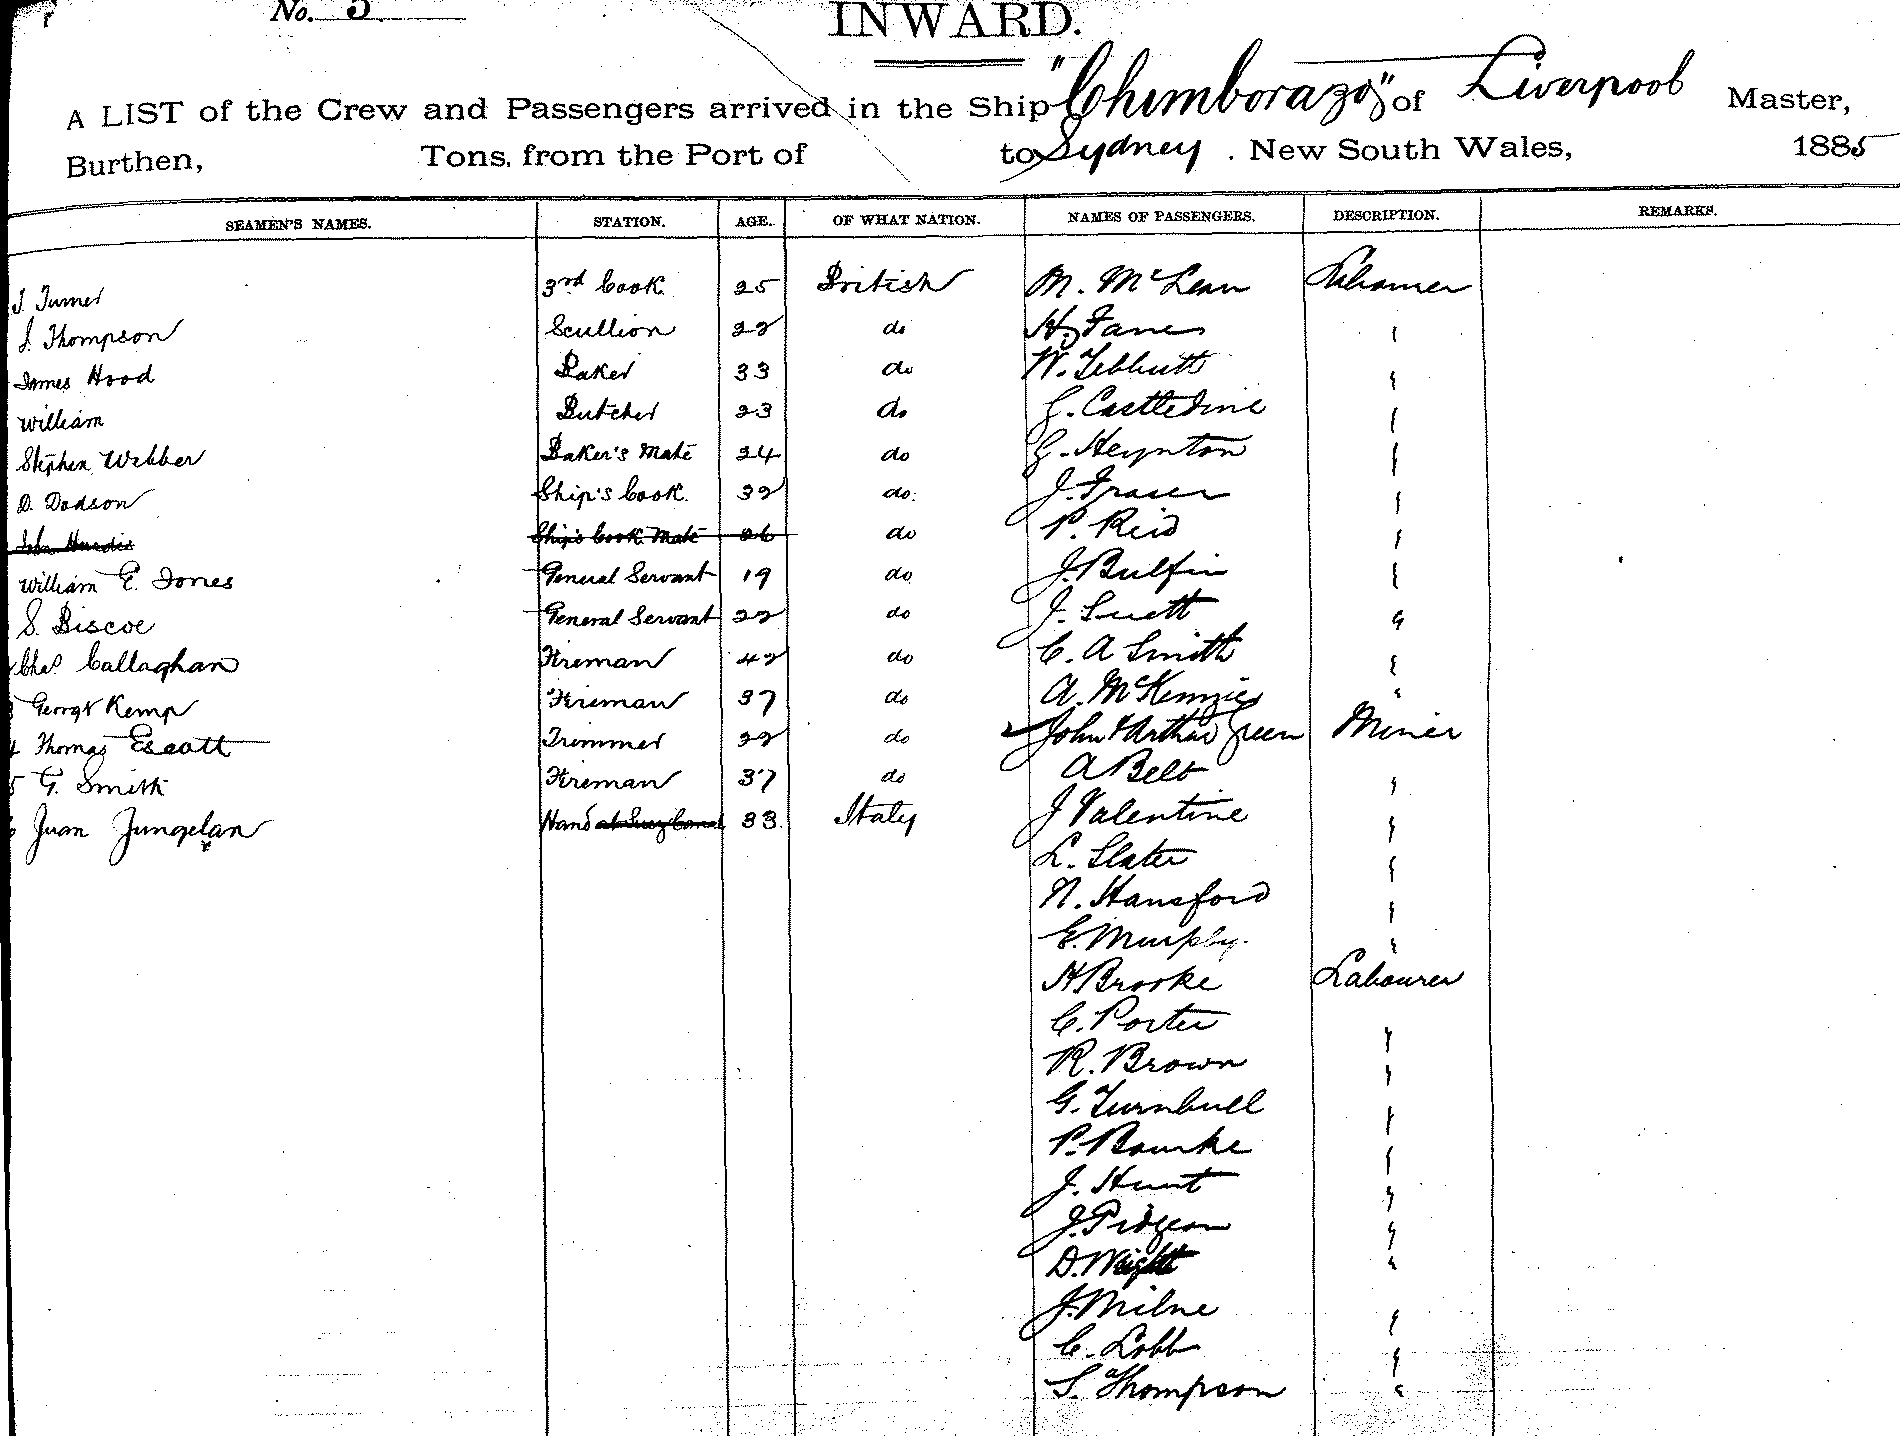 No. 5.
INWARD.
A LIST of the Crew and Passengers arrived in the Ship "Chimborazo" of Liverpool Master,
Burthen, Tons, from the Port of to Sydney . New South Wales, 1885
SEAMEN'S NAMES. STATION. AGE. OF WHAT NATION. NAMES OF PASSENGERS. DESCRIPTION. REMARKS.
J. Turner 3rd Cook 25 British M. McLean Labourer
J. Thompson Scullion 22 do H. Fanes "
James Hood Baker 33 do W. Tebbutt "
William Butcher 23 do G. Castledine "
Stephen Webber Baker's Mate 24 do G. Heynton "
D. Dodson Ship's Cook 32 do. J. Fraser "
John Ship's Cook Mate 26 do P. Reid "
William E. Jones General Servant 19 do J. Bulfin "
S. Biscoe General Servant 22 do J. Suett "
Chas. Callaghan Fireman 42 do C. A Smith "
George Kemp Fireman 37 do A. McKenzie "
4 Thomas Escott Trimmer 22 do John & Arthur Green Miner
5 G. Smith Fireman 37 do A Belt "
Juan Jungelan Hand at Suez Canal 33 Italy J Valentine "
L. Slater "
N. Hansford "
E. Murphy. "
H Brooke Labourer
C. Porter "
R. Brown "
G. Turnbull "
P. Bourke "
J. Hunt "
J. Pidgeon "
D. Wright "
J. Milne "
C. Lobb "
S. Thompson "